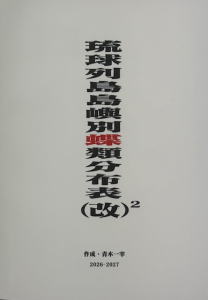 琉球列島島嶼別蝶類分布表(改)²
作成・青木一宰
2026-2027